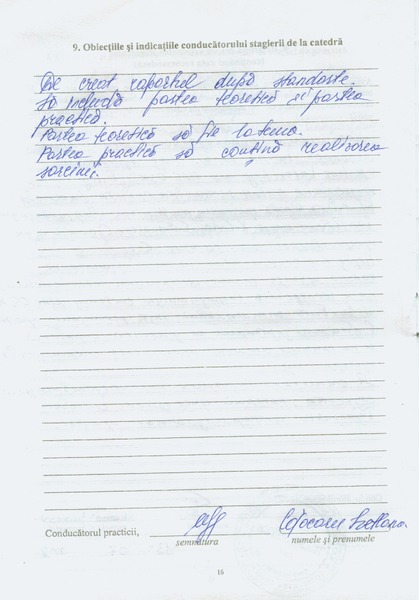 9. Obiecțiile și indicațiile conducătorului stagierii de la catedră
De creat raportul după standarte.
Să includă partea teoretică și partea
practică.
Partea teoretică să fie la tema.
Partea practică să conțină realizarea
sarcinii.
Conducătorul practicii,
semnătura
numele și prenumele
16